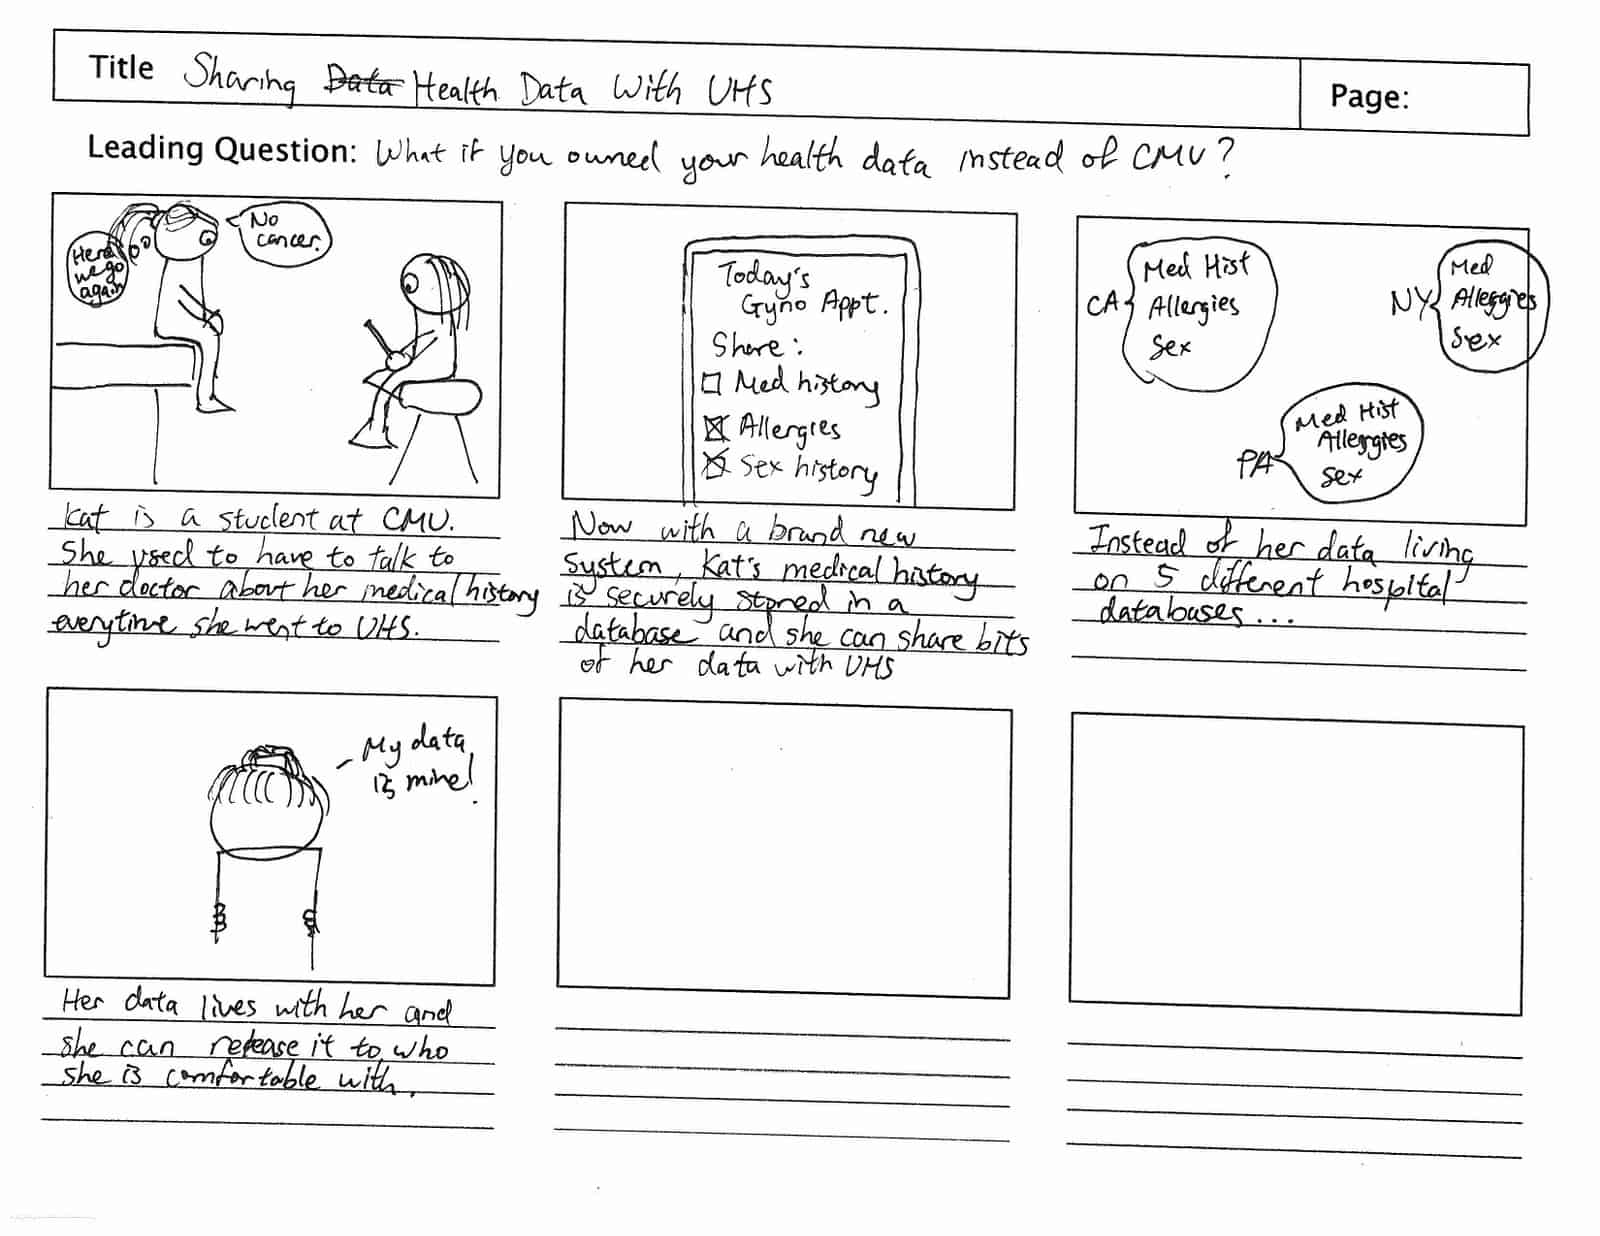 Title Sharing Data Health Data With UHS
Page:
Leading Question: What if you owned your health data instead of CMU?
Here
we go
again
No
cancer.
Kat is a student at CMU.
She used to have to talk to
her doctor about her medical history
everytime she went to UHS.
Today's
Gyno Appt.
Share:
Med history
Allergies
Sex history
Now with a brand new
system, Kat's medical history
is securely stored in a
database and she can share bits
of her data with UHS
CA
Med Hist
Allergies
Sex
NY
Med
Alleggies
Sex
PA
Med Hist
Allergies
Sex
Instead of her data living
on 5 different hospital
databases...
My data
is mine!
Her data lives with her and
she can release it to who
she is comfortable with.